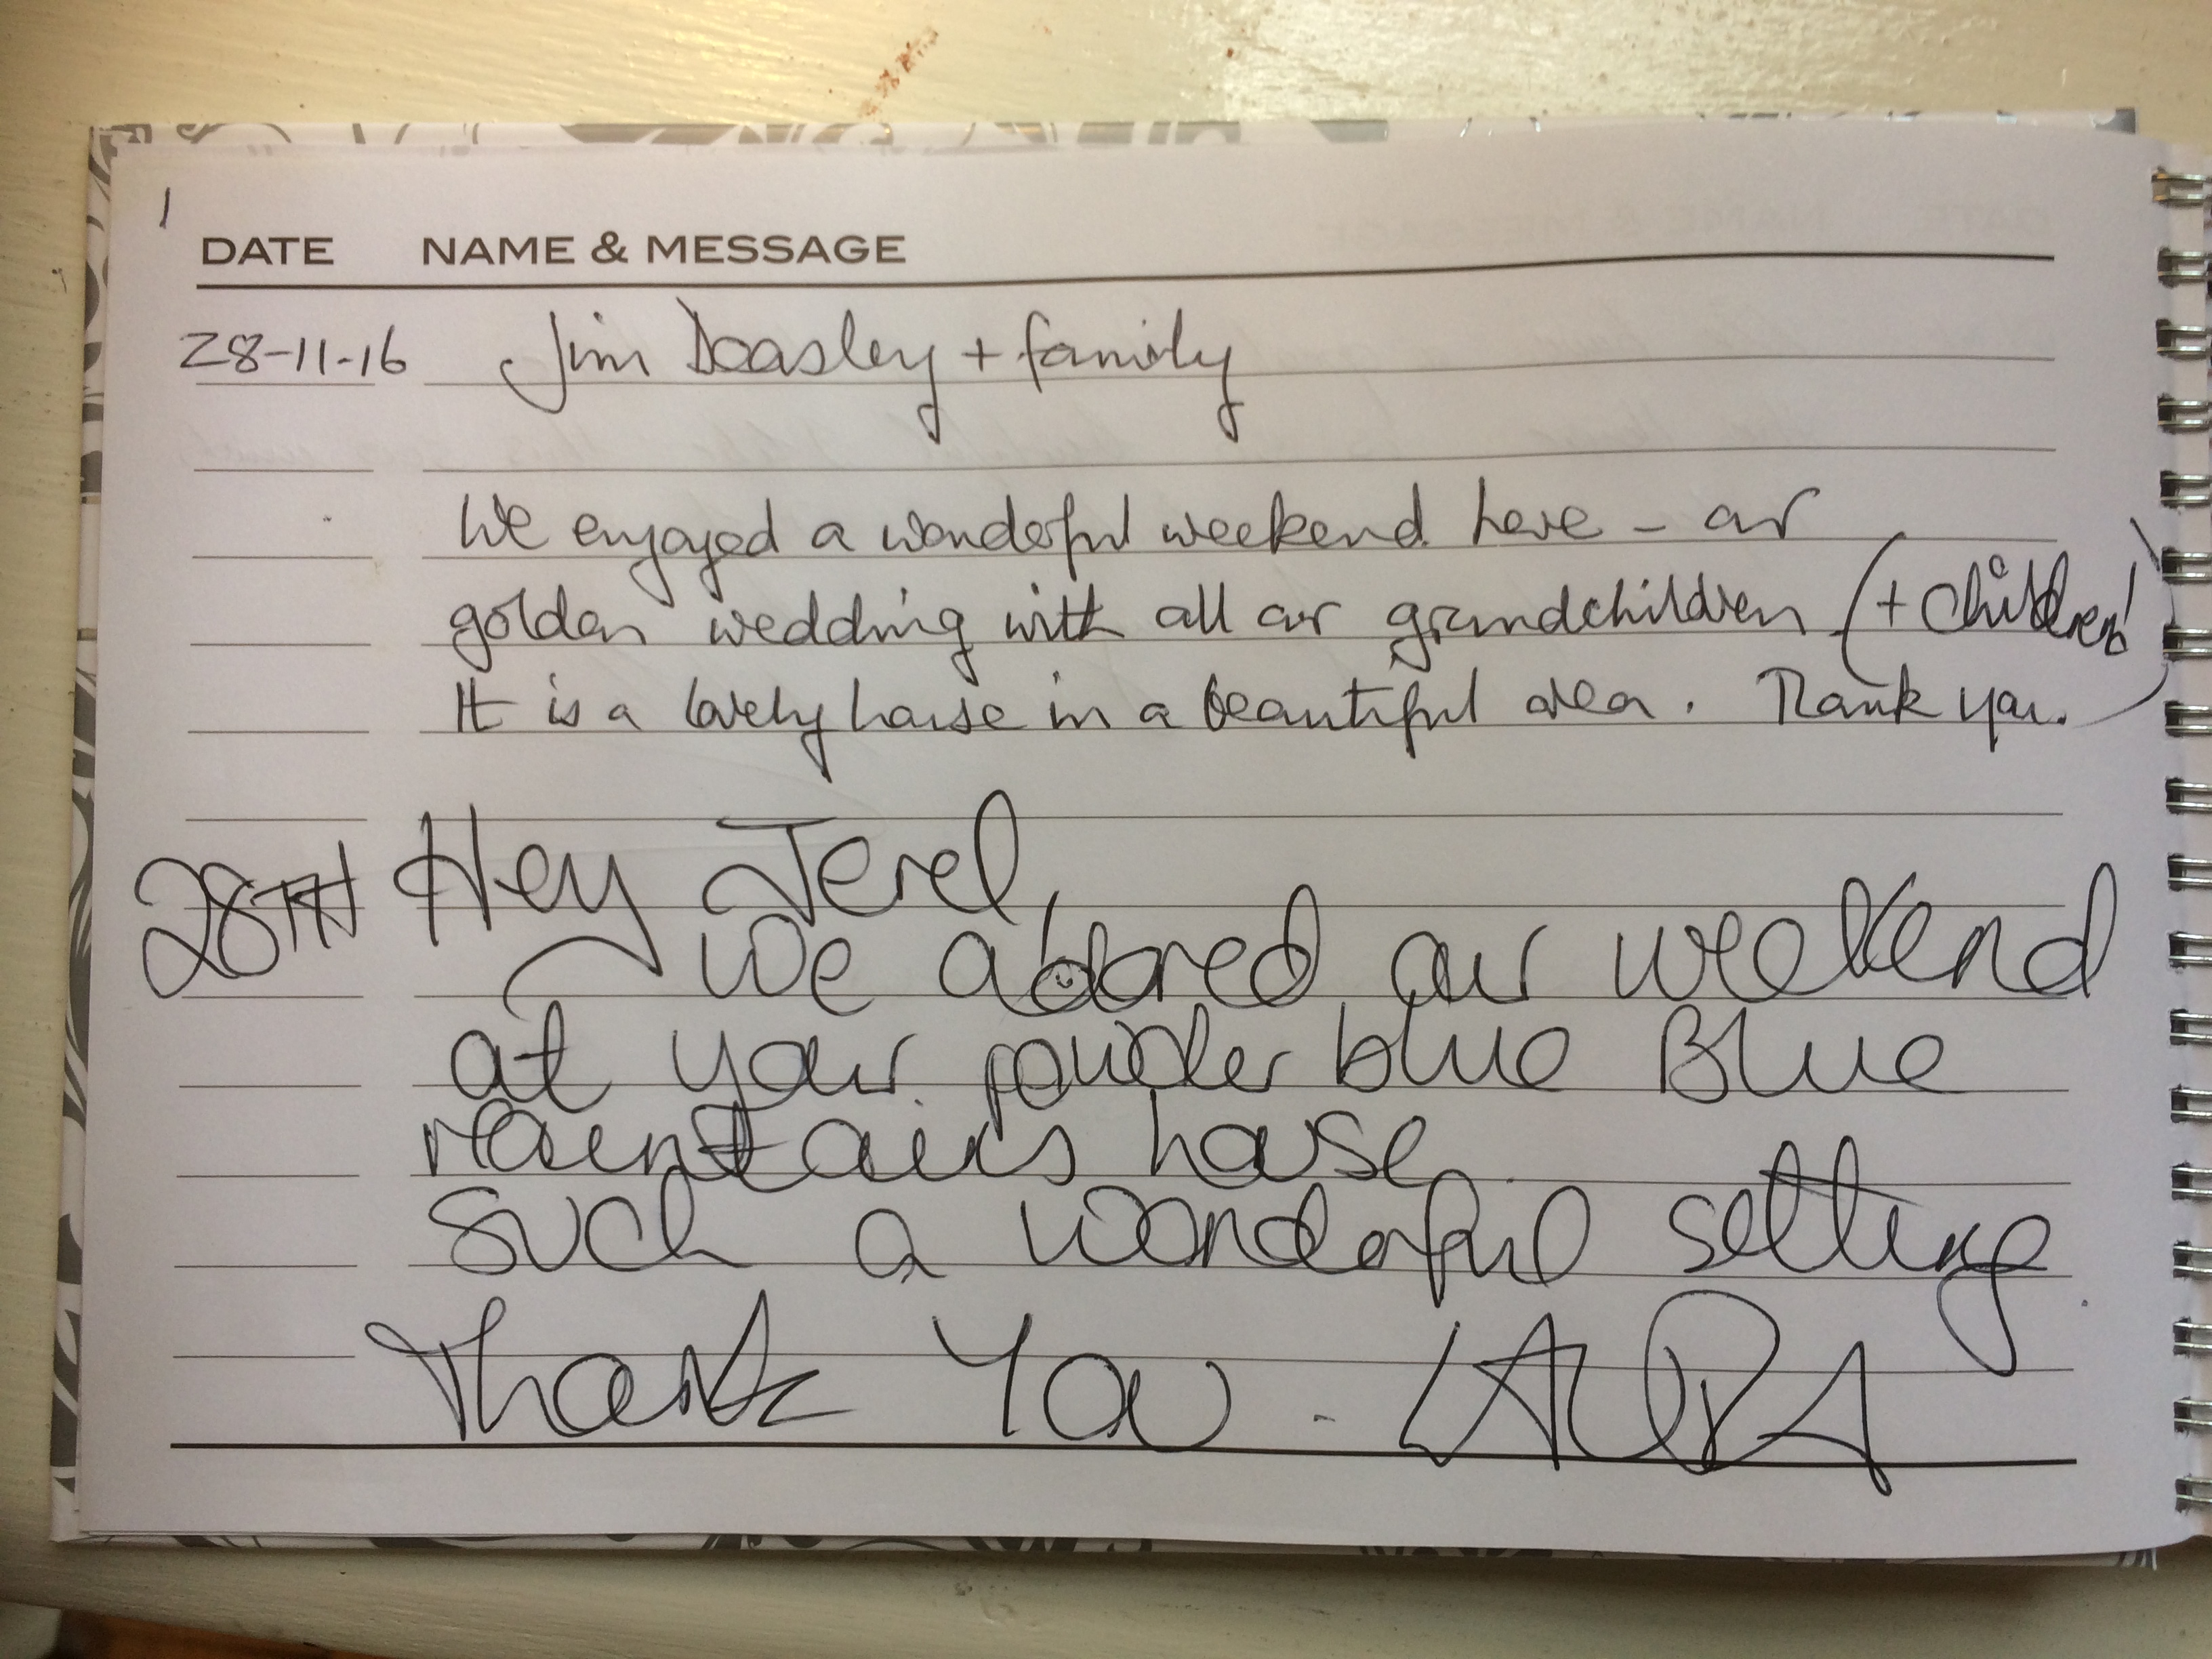 1
DATE NAME & MESSAGE
28-11-16 Jim Beasley + family
We enjoyed a wonderful weekend here - our
golden wedding with all our grandchildren (+ children!)
It is a lovely house in a beautiful area. Thank you.
28TH Hey Jerel,
We adored our weekend
at your powder blue Blue
Mountains house.
Such a wonderful setting
Thank You - LAURA